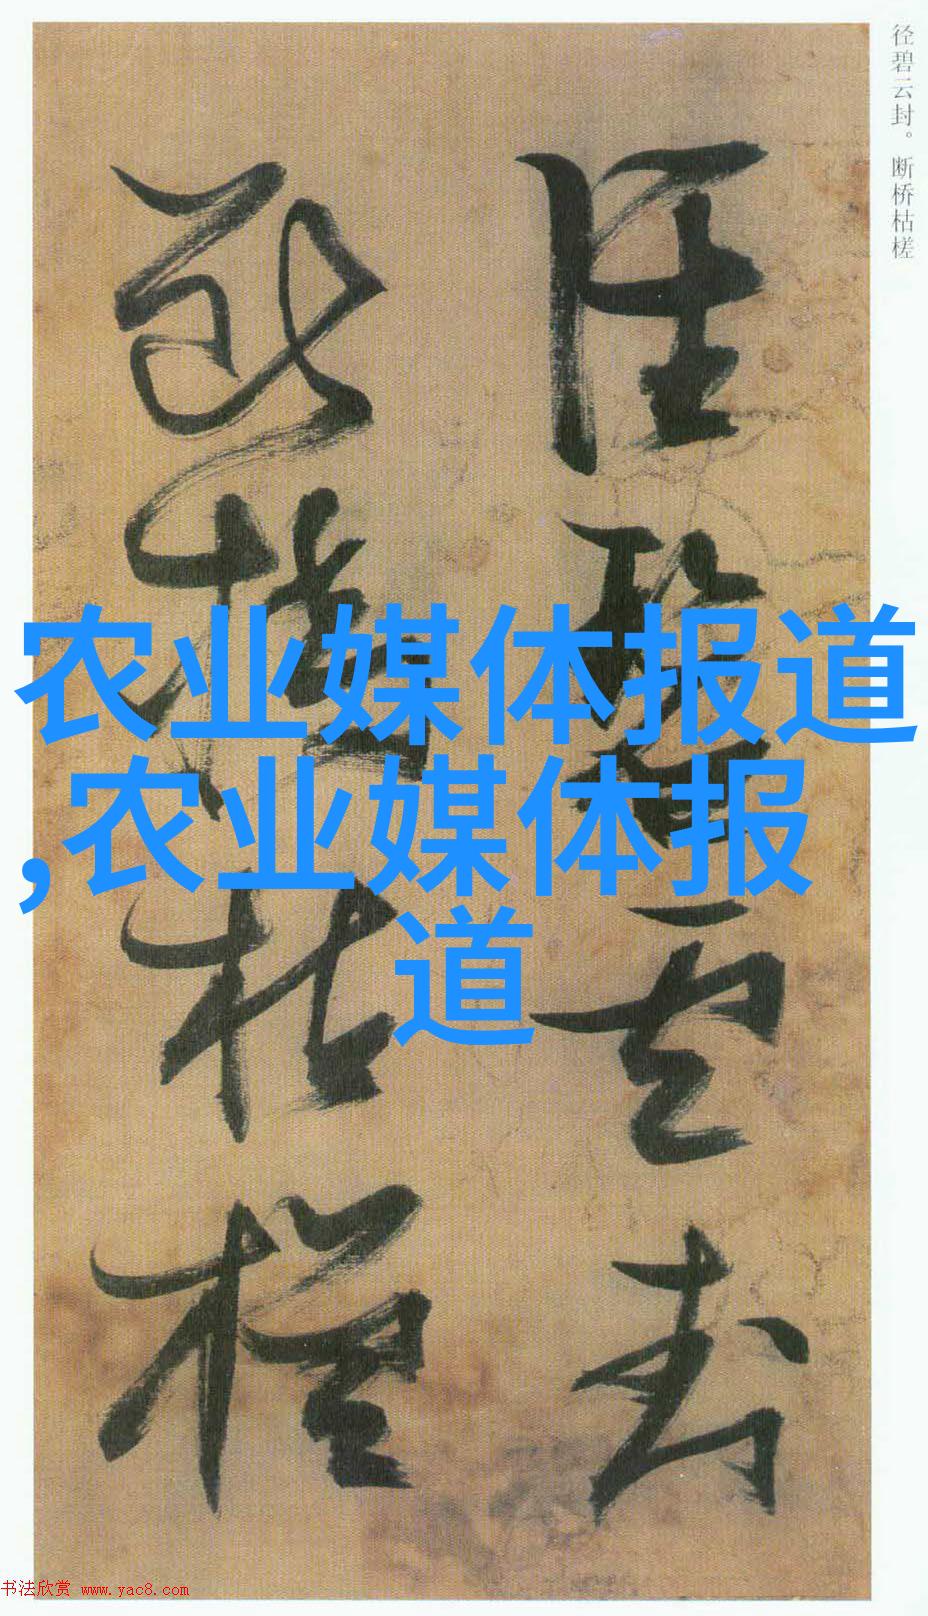 径碧云封。断桥枯槎
径碧云封
断桥枯槎
农业媒体报道
,农业媒体报
道
书法欣赏 www.yac8.com